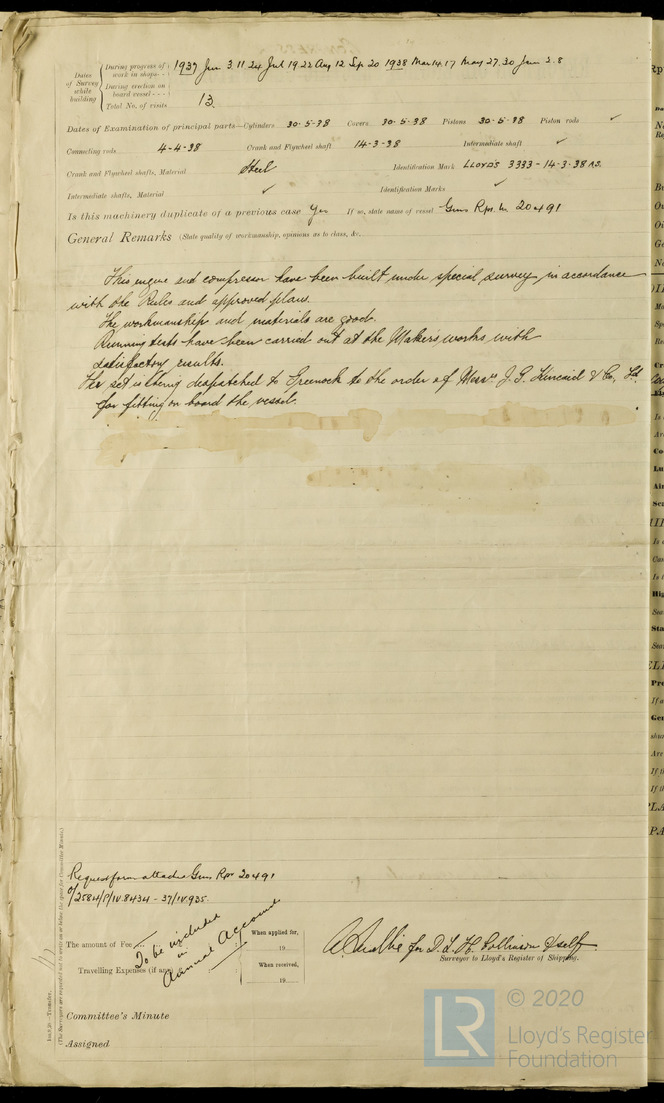 Dates of Survey while building
During progress of work in shops - - 1937 Jun 3. 11 24 Jul 19 22 Aug 12 Sep 20 1938 Mar 14. 17 May 27. 30 Jun 2. 8
During erection on board vessel - - -
Total No. of visits 13.
Dates of Examination of principal parts—Cylinders 30-5-38 Covers 30-5-38 Pistons 30-5-38 Piston rods ✓
Connecting rods 4-4-38 Crank and Flywheel shaft 14-3-38 Intermediate shaft ✓
Crank and Flywheel shafts, Material Steel Identification Mark LLOYD'S 3333-14-3-38
Intermediate shafts, Material ✓ Identification Marks ✓
Is this machinery duplicate of a previous case Yes If so, state name of vessel Rpt. No 20491
General Remarks (State quality of workmanship, opinions as to class, &c.
This engine and compressor have been built under special survey in accordance
with the Rules and approved plans.
The workmanship and materials are good.
Running tests have been carried out at the Makers works with
satisfactory results.
The set is being despatched to Greenock to the order of Messrs J. G. Kincaid & Co, Ltd.
for fitting on board the vessel.
Request form attached Rpt 20491
O/2584/P/IV8434 - 37/IV935.
The amount of Fee ...
Travelling Expenses (if any)
To be included
in
Annual Account
When applied for,
19
When received,
19
for D. L. H. Collinson & self.
Surveyor to Lloyd's Register of Shipping.
Committee's Minute
Assigned
(The Surveyors are requested not to write on or below the space for Committee Minute.)
© 2020
LR
Lloyd's Register
Foundation